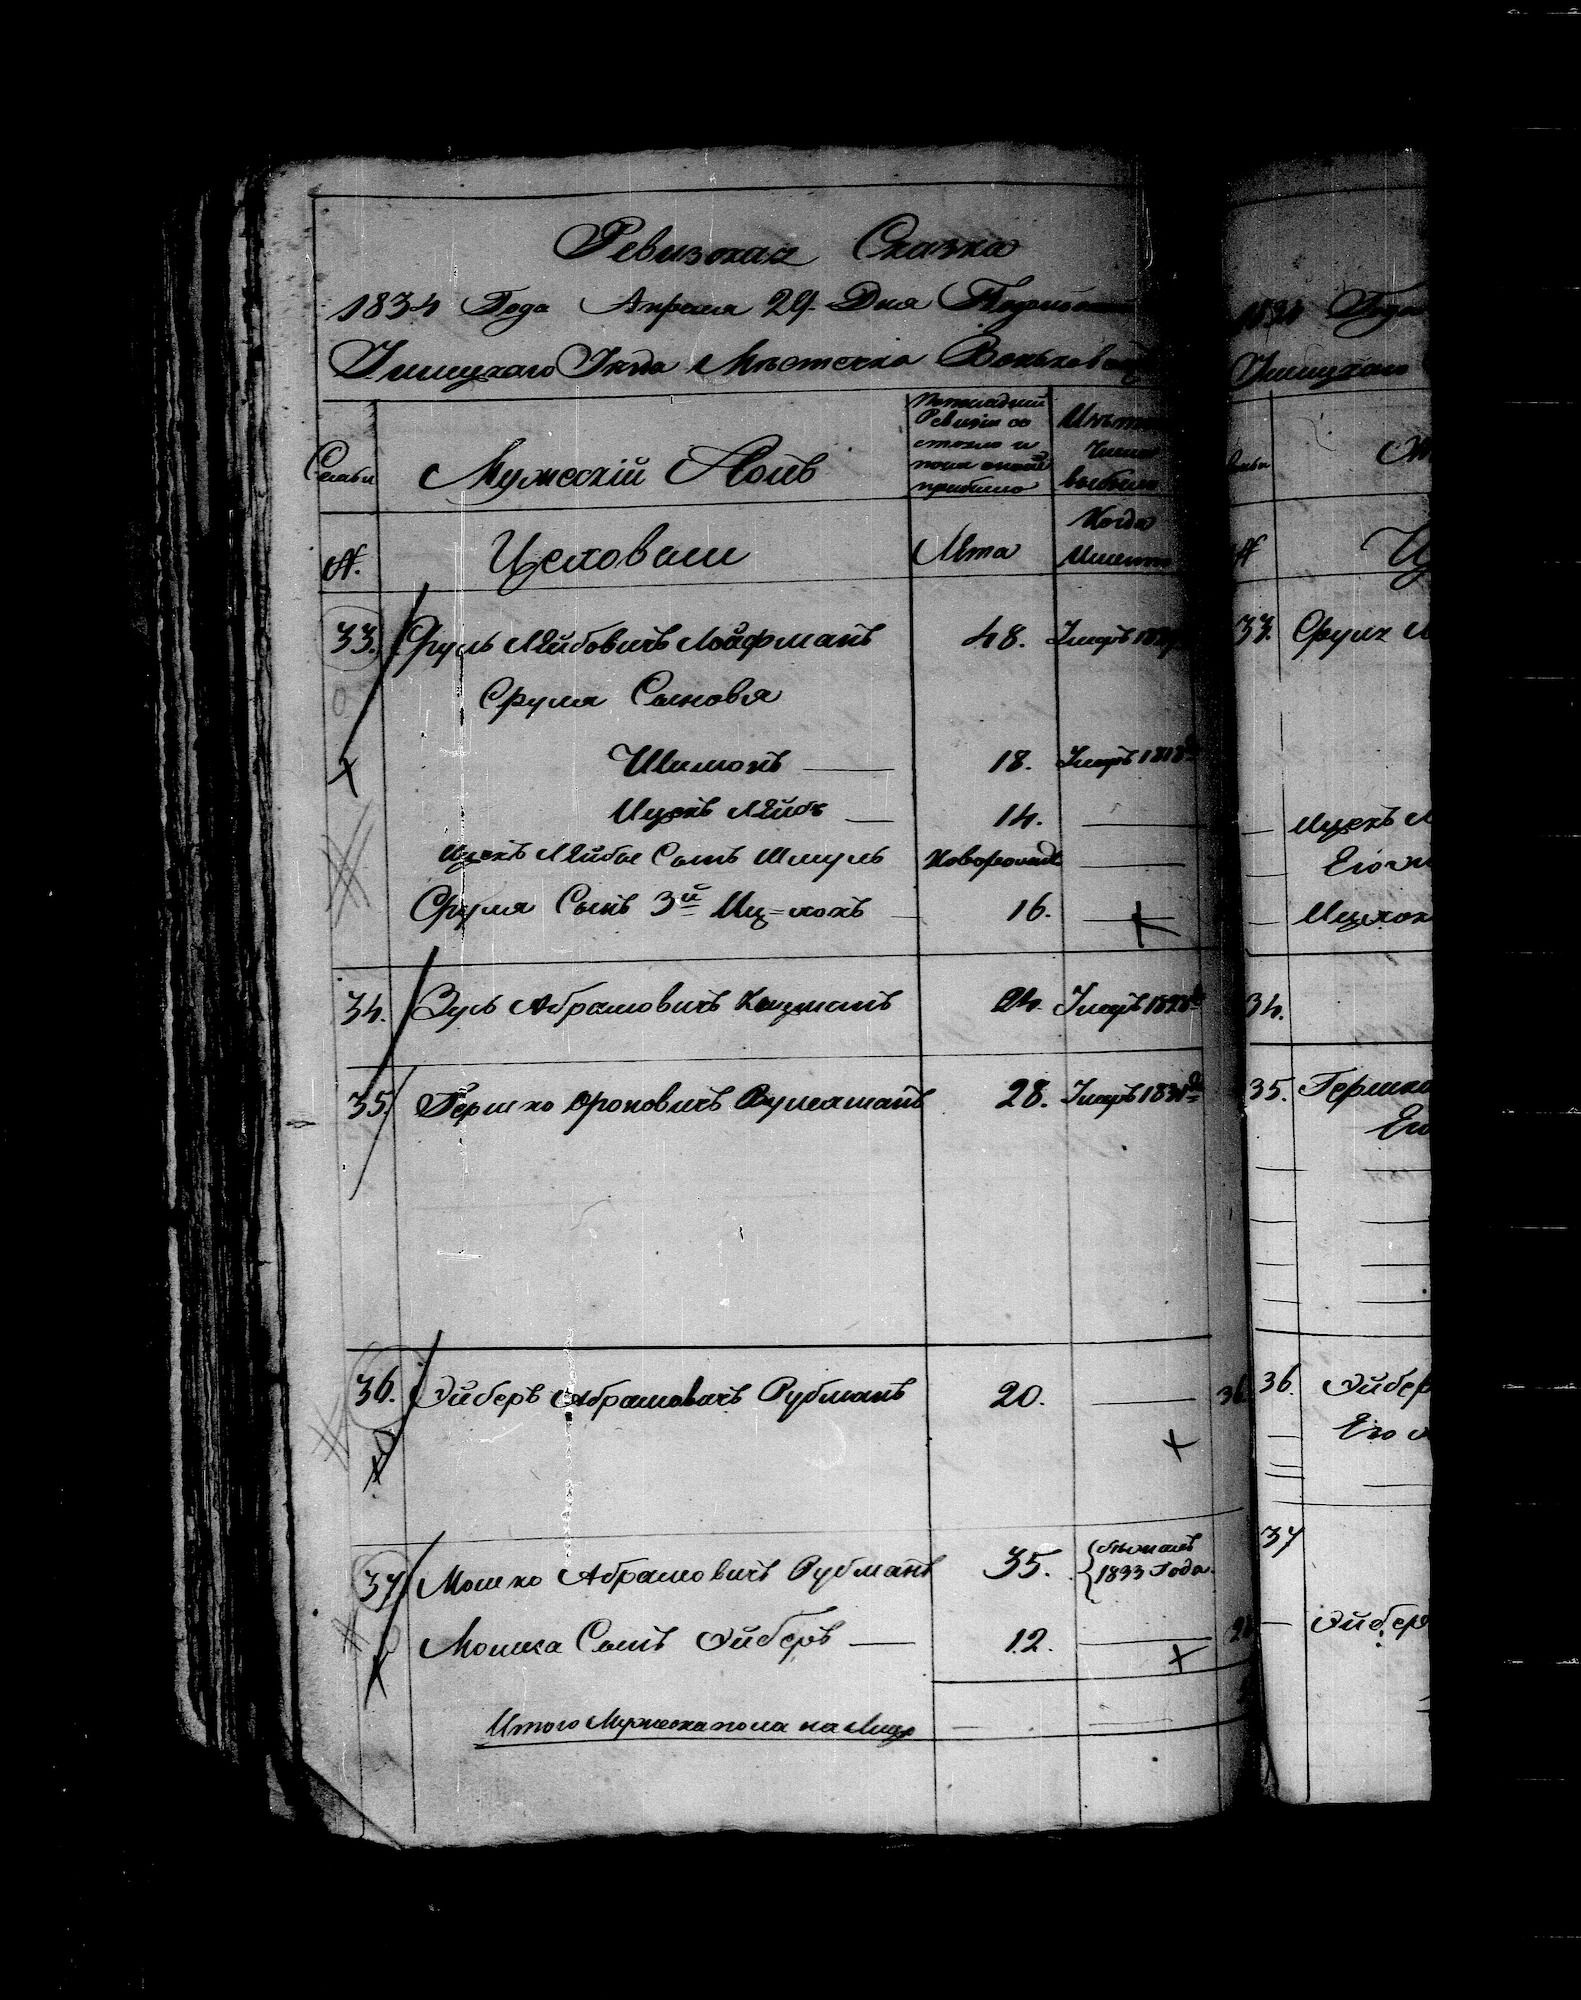 Ревизская Сказка
1834 Года Апреля 29. Дня
Ушицкаго Уезда Мѣстечка
Семьи
Мужескій Полъ
По последней
Ревизіи со
стояло и
после оной
прибыло
Изъ того
Числа
выбыло
№.
Лета
Когда
Именно
33. Сруль Лейбовичъ Лойфманъ 48. Умеръ
Сруля Сыновя
Шимонъ 18. Умеръ 1818
Ицекъ Лейба 14.
Ицекъ Лейбы Сынъ Шмуль Новорожде
Сруля Сынъ 3й Иц=хокъ 16.
34. Зусь Абрамовичъ 24. Умеръ
35. Гершко Ароновичъ 28. Умеръ 1831
36. Эйберъ Абрамовичъ Рубманъ 20.
37 Мошко Абрамовичъ Рубманъ 35. бежалъ
1833 Года.
Мошка Сынъ Эйберъ 12.
Итого Мужеска пола на Лицо
1834 Года
Ушицкаго
№
33. Сруля
Ицекъ
Его
34.
35. Гершко
Его
36. Эйбер
Его
37
Эйбер